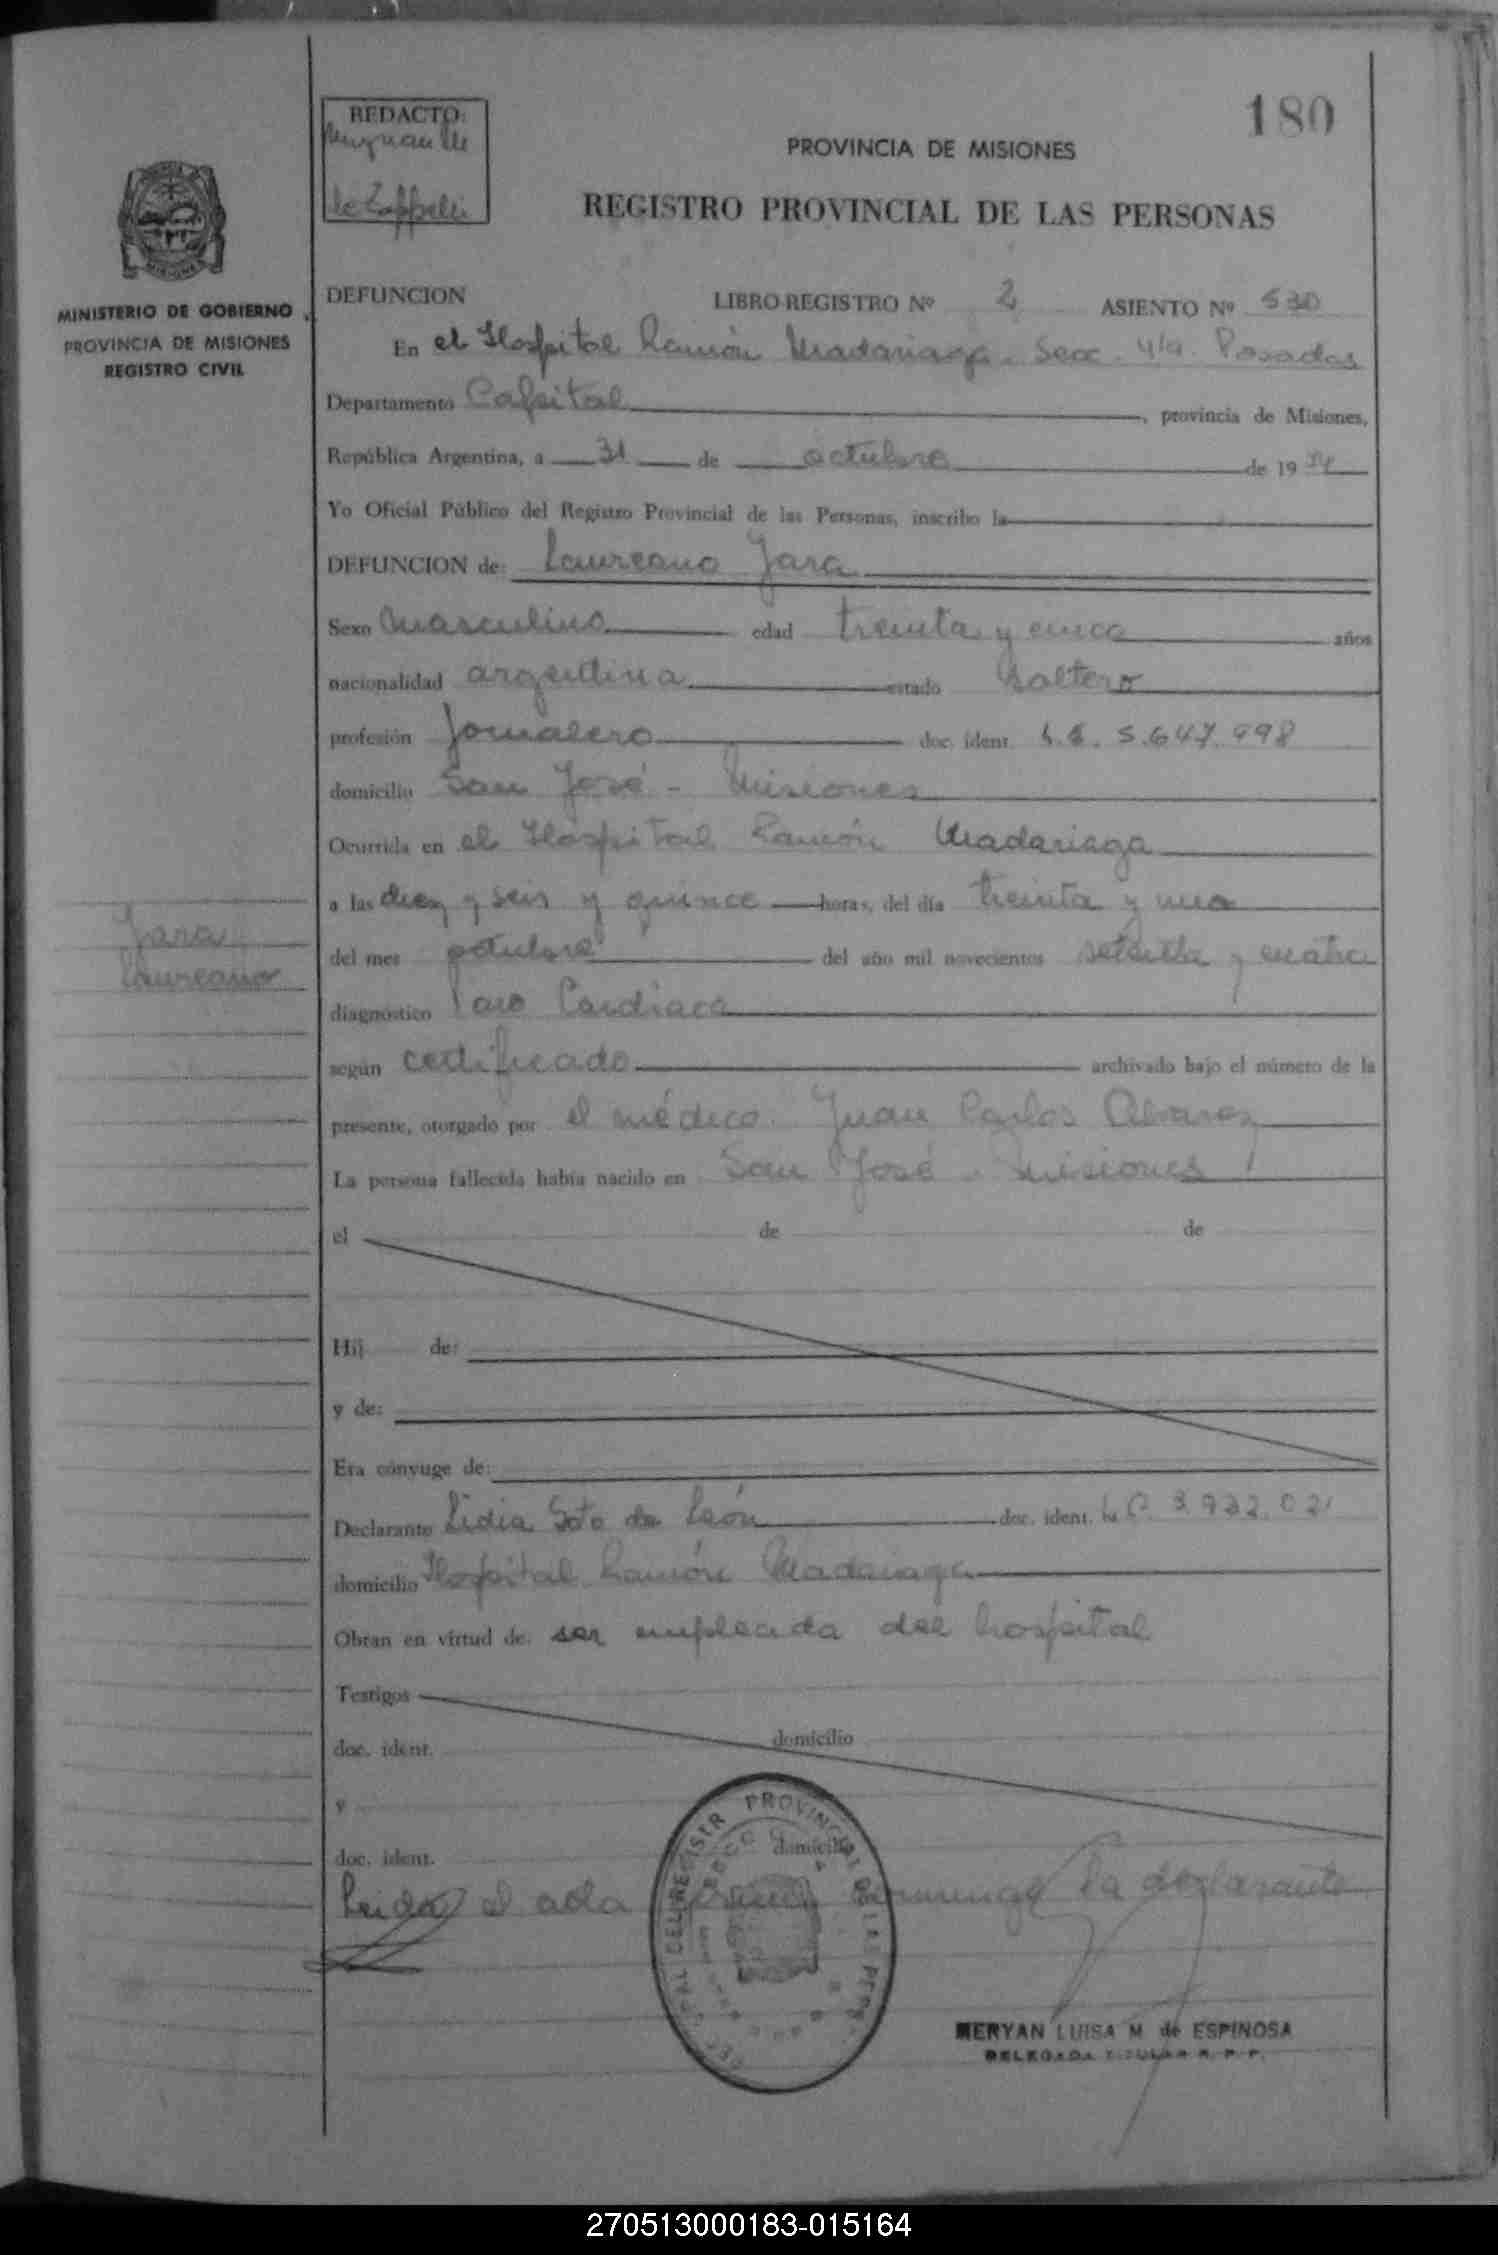 REDACTO:
180
PROVINCIA DE MISIONES
REGISTRO PROVINCIAL DE LAS PERSONAS
MISIONES
MINISTERIO DE GOBIERNO
PROVINCIA DE MISIONES
REGISTRO CIVIL
DEFUNCION LIBRO-REGISTRO Nº 2 ASIENTO Nº 530
En el Hospital Ramón Madariaga. Secc. 4ta. Posadas
Departamento Capital, provincia de Misiones,
República Argentina, a 31 de octubre de 1974
Yo Oficial Público del Registro Provincial de las Personas, inscribo la
DEFUNCION de: Laureano Jara
Sexo masculino edad treinta y cinco años
nacionalidad argentina estado soltero
profesión Jornalero doc. ident. L.E. 5.647.998
domicilio San José - Misiones
Ocurrida en el Hospital Ramón Madariaga
a las diez y seis y quince horas, del día treinta y uno
Jara
Laureano
del mes octubre del año mil novecientos setenta y cuatro
diagnóstico Paro Cardiaco
según certificado archivado bajo el número de la
presente, otorgado por el médico Juan Carlos Alvarez
La persona fallecida había nacido en San José - Misiones
el de de
Hij de:
y de:
Era cónyuge de:
Declarante Lidia Soto de León doc. ident. L.C. 3.932.021
domicilio Hospital Ramón Madariaga
Obran en virtud de: ser empleada del hospital
Testigos
doc. ident. domicilio
y
doc. ident. domicilio
Leida el acta la declarante
PROVINCIAL DE LAS PERS
MERYAN LUISA M. de ESPINOSA
DELEGADA TITULAR R. P. P.
270513000183-015164